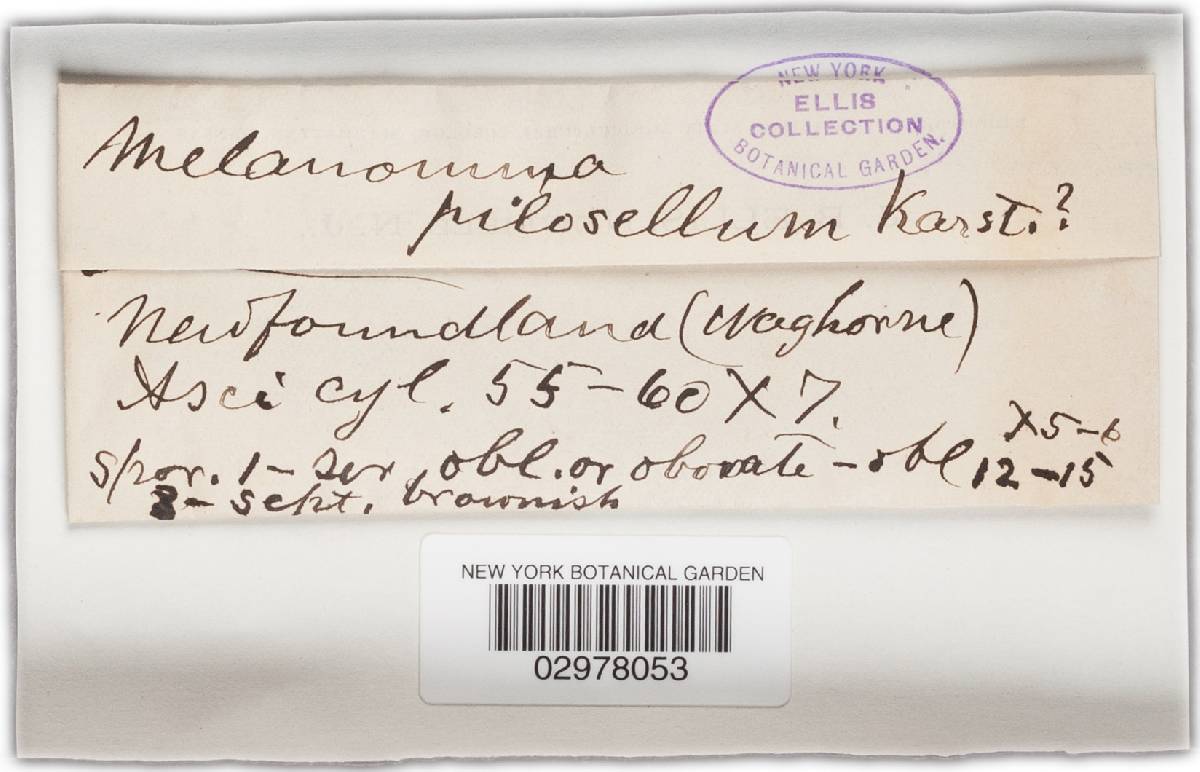 NEW YORK
ELLIS
COLLECTION
BOTANICAL GARDEN.
Melanomma
pilosellum Karst.?
Newfoundland (Waghorne)
Asci cyl. 55-60 X 7.
X5-6
spor. 1-ser, obl. or obovate-obl 12-15
3-sept. brownish
NEW YORK BOTANICAL GARDEN
02978053